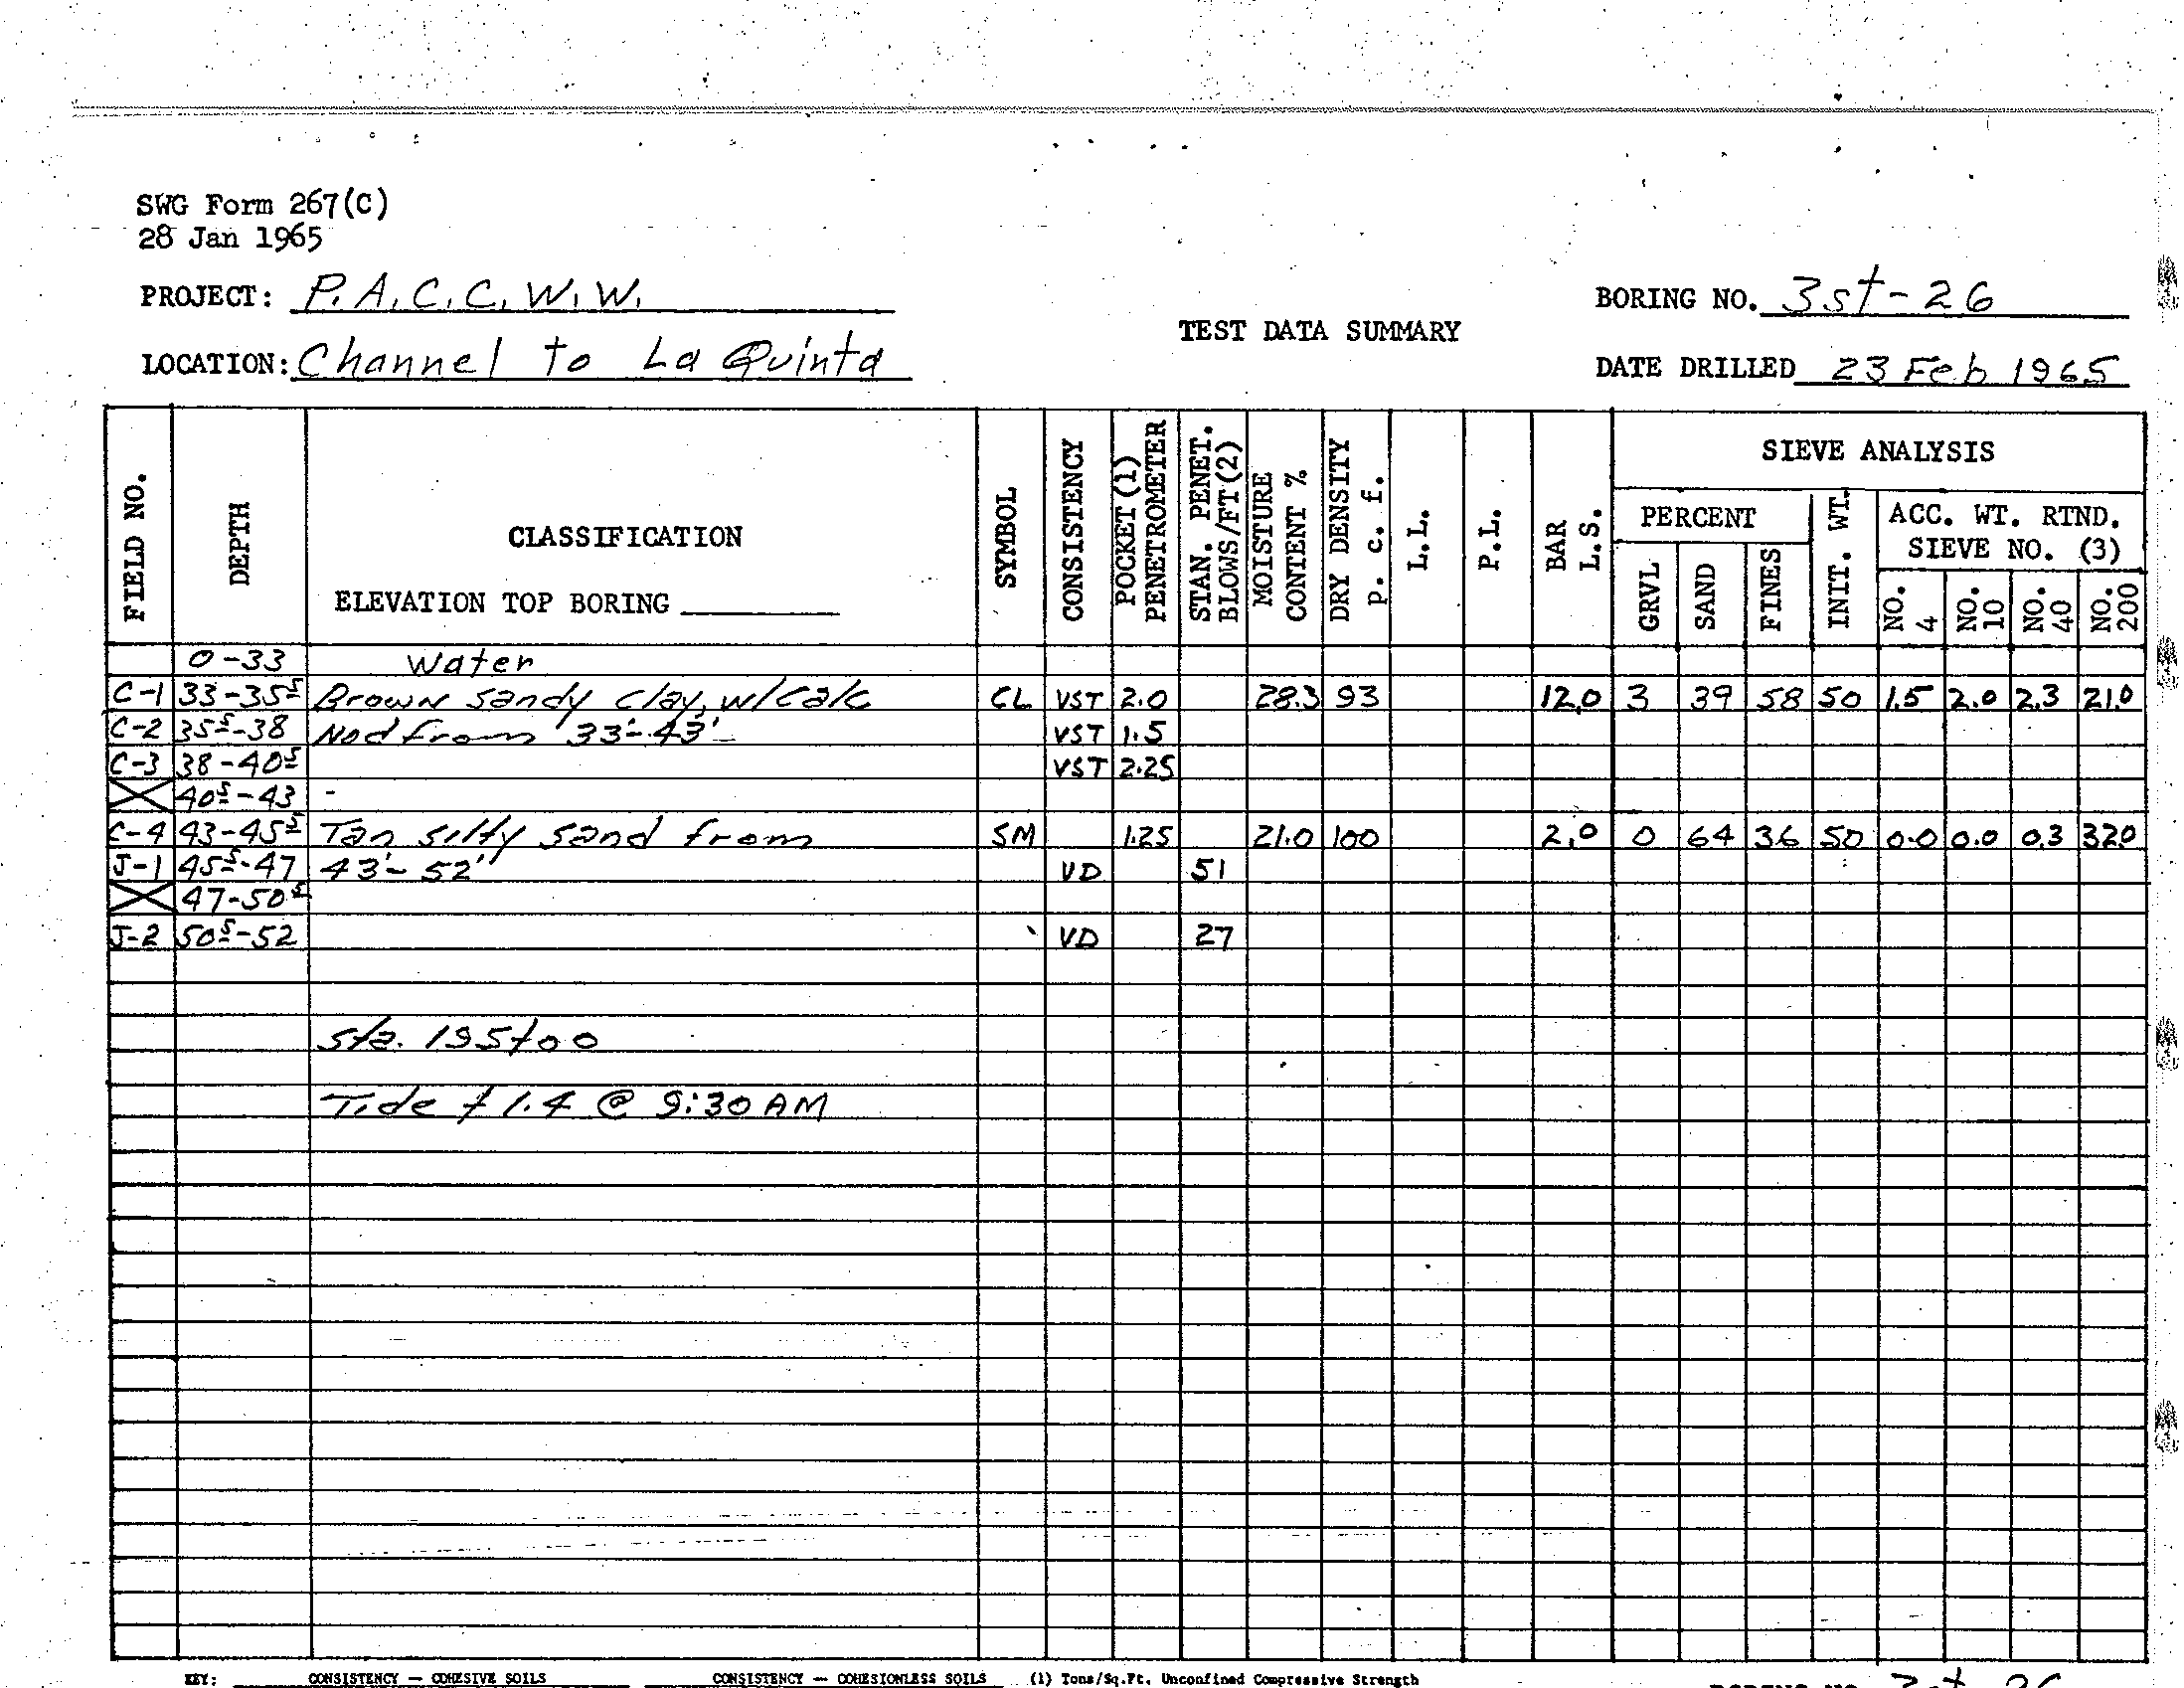 SWG Form 267(C)
28 Jan 1965
PROJECT: P.A.C.C.W.W.
BORING NO. 3st-26
TEST DATA SUMMARY
LOCATION: Channel to La Quinta
DATE DRILLED 23 Feb 1965
FIELD NO. DEPTH CLASSIFICATION SYMBOL CONSISTENCY POCKET (1) PENETROMETER STAN. PENET. BLOWS/FT(2) MOISTURE CONTENT % DRY DENSITY p. c. f. L.L. P.L. BAR L.S. SIEVE ANALYSIS
PERCENT INIT. WT. ACC. WT. RTND. SIEVE NO. (3)
ELEVATION TOP BORING
GRVL SAND FINES NO. 4 NO. 10 NO. 40 NO. 200
0-33 Water
C-1 33-35⁵ Brown sandy clay, w/calc CL VST 2.0 28.3 93 12.0 3 39 58 50 1.5 2.0 2.3 21.0
C-2 35⁵-38 Nod from 33'-43' VST 1.5
C-3 38-40⁵ VST 2.25
40⁵-43 -
C-4 43-45⁵ Tan silty sand from SM 1.25 21.0 100 2.0 0 64 36 50 0.0 0.0 0.3 32.0
J-1 45⁵-47 43'-52' VD 51
47-50⁵
J-2 50⁵-52 VD 27
Sta. 195+00
Tide + 1.4 @ 9:30 AM
KEY: CONSISTENCY — COHESIVE SOILS CONSISTENCY — COHESIONLESS SOILS (1) Tons/Sq.Ft. Unconfined Compressive Strength